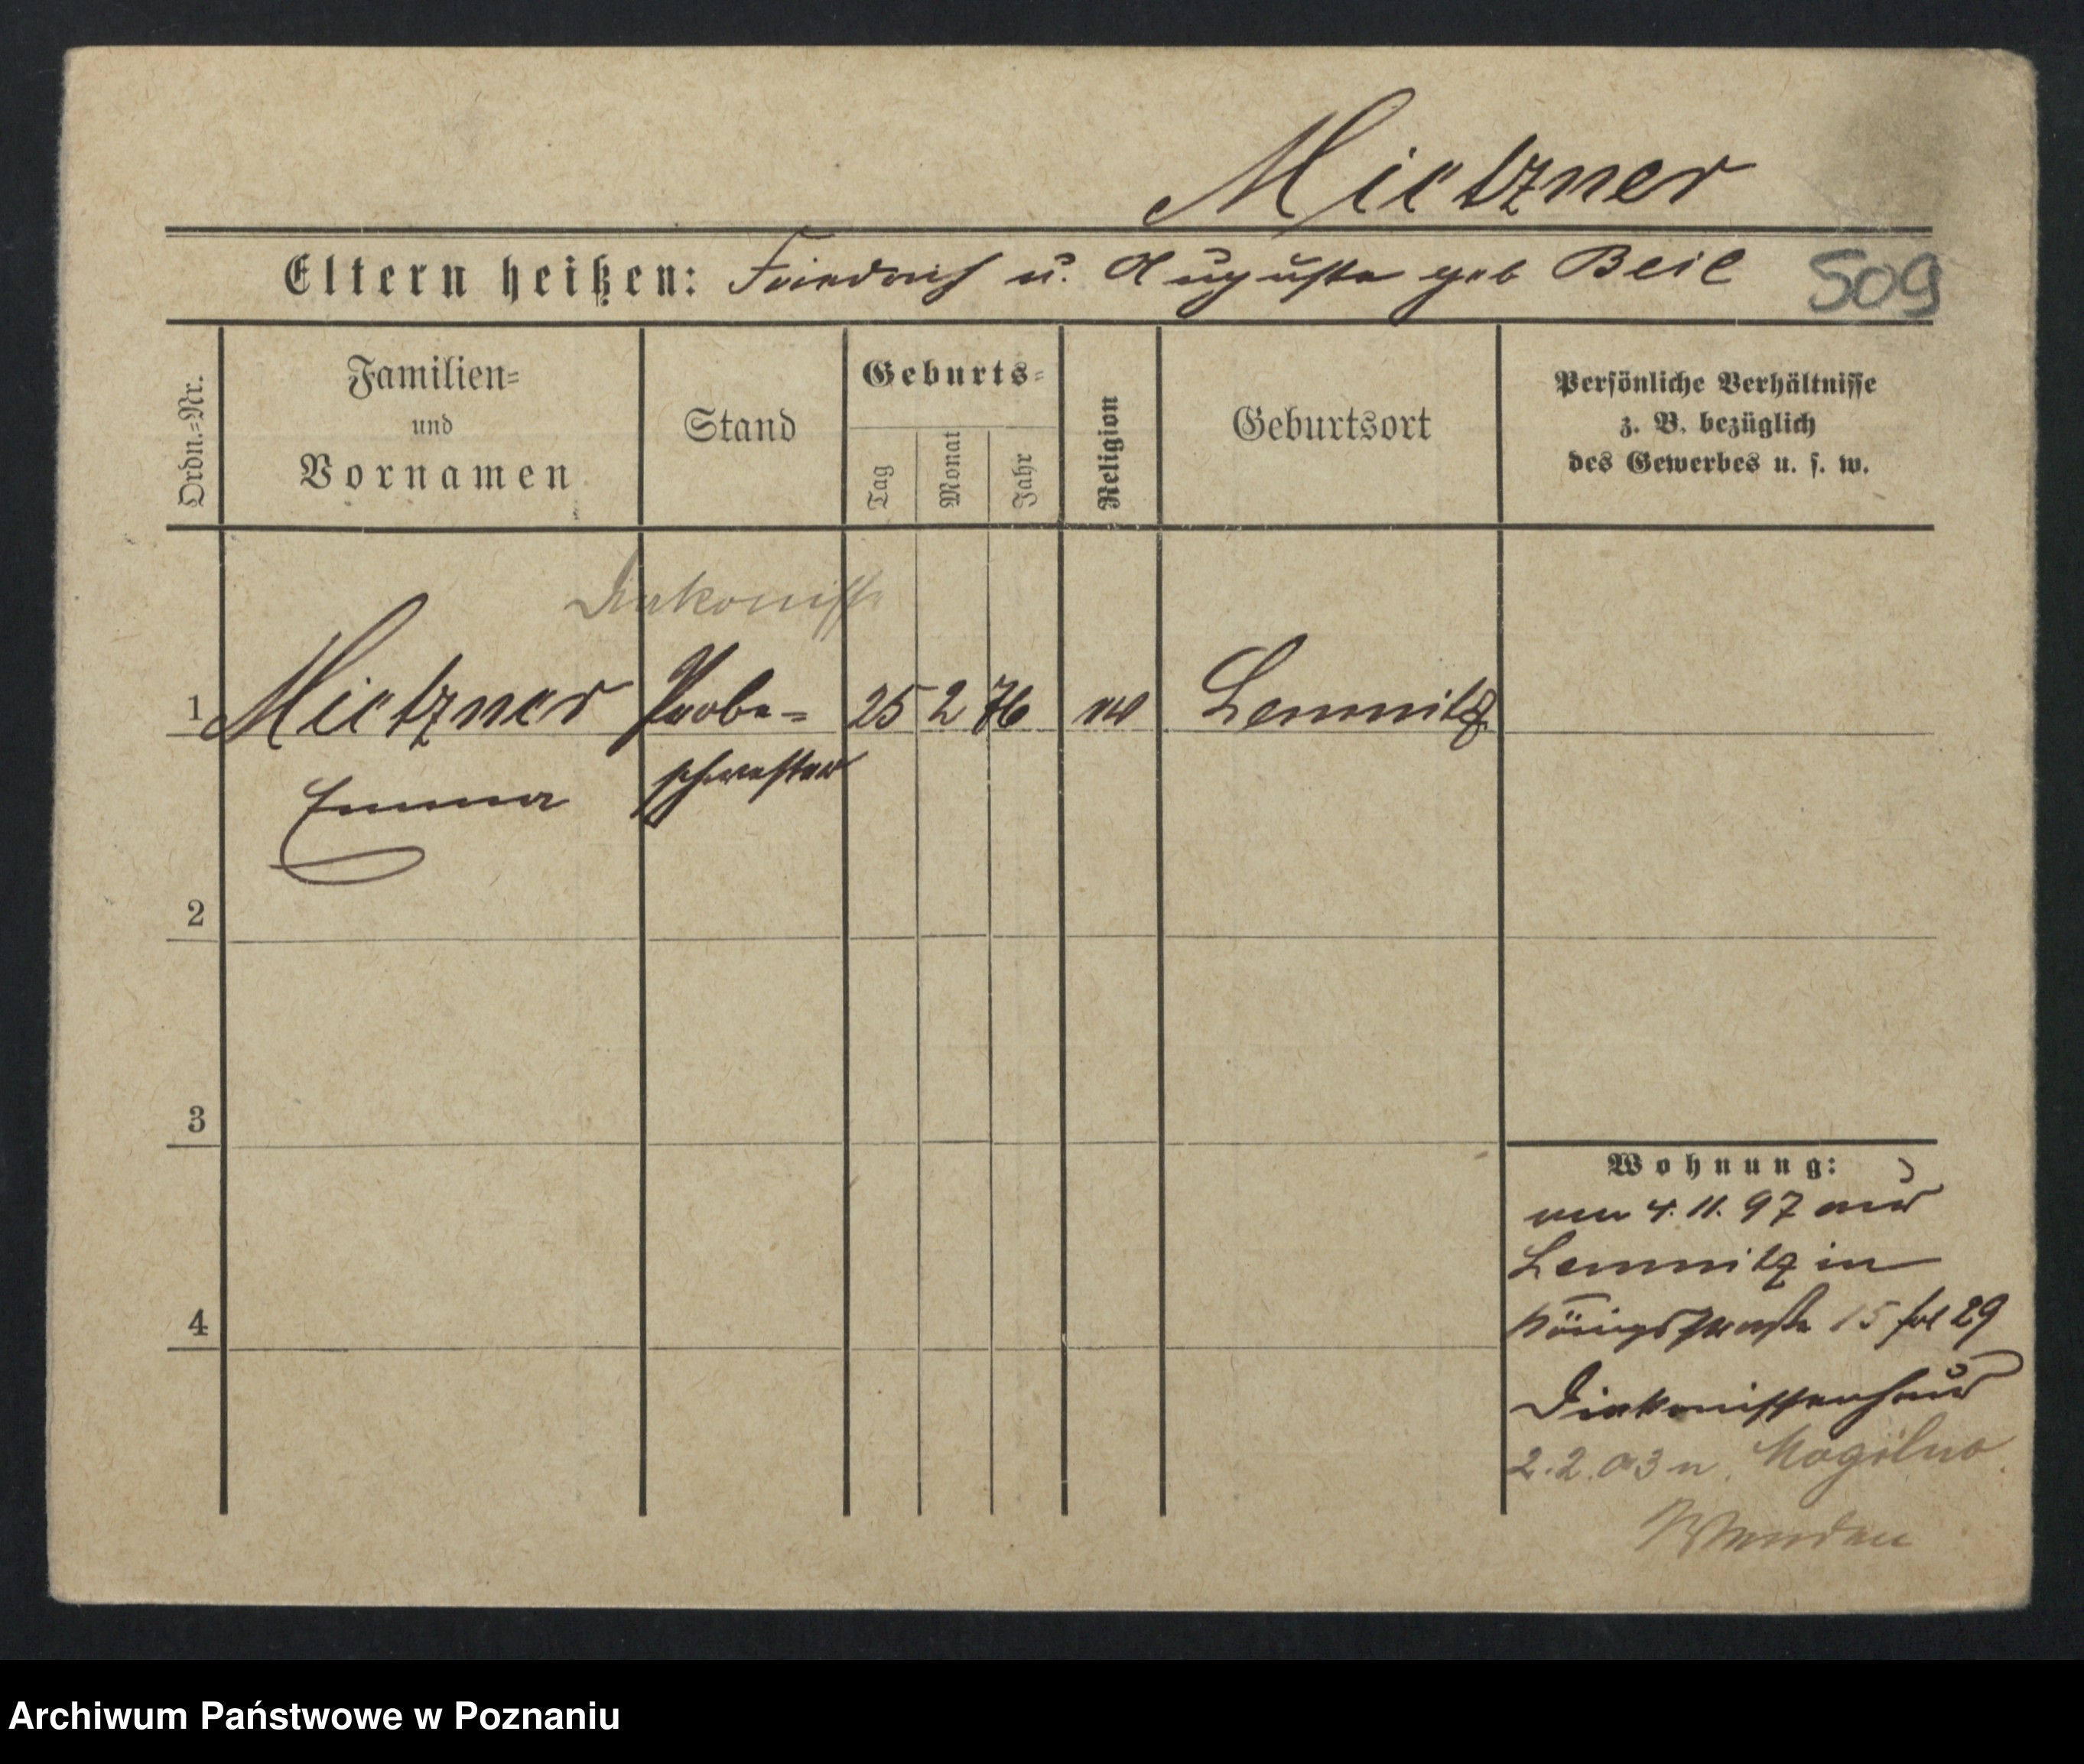 Mietzner
Eltern heißen: Friedrich u. Auguste geb Beil 509
Ordn.=Nr.
Familien=
und
Vornamen
Stand
Geburts=
Tag
Monat
Jahr
Religion
Geburtsort
Persönliche Verhältnisse
z. B. bezüglich
des Gewerbes u. s. w.
Diakoniss
1 Mietzner Probe= 25 2 76 Lemnitz
Emma schwester
2
3
4
Wohnung:
vom 4. 11. 97 aus
Lemnitz in
Königstraße 15 fol 29
Diakonissenhaus
2. 2. 03 n. Mogilno
Archiwum Państwowe w Poznaniu